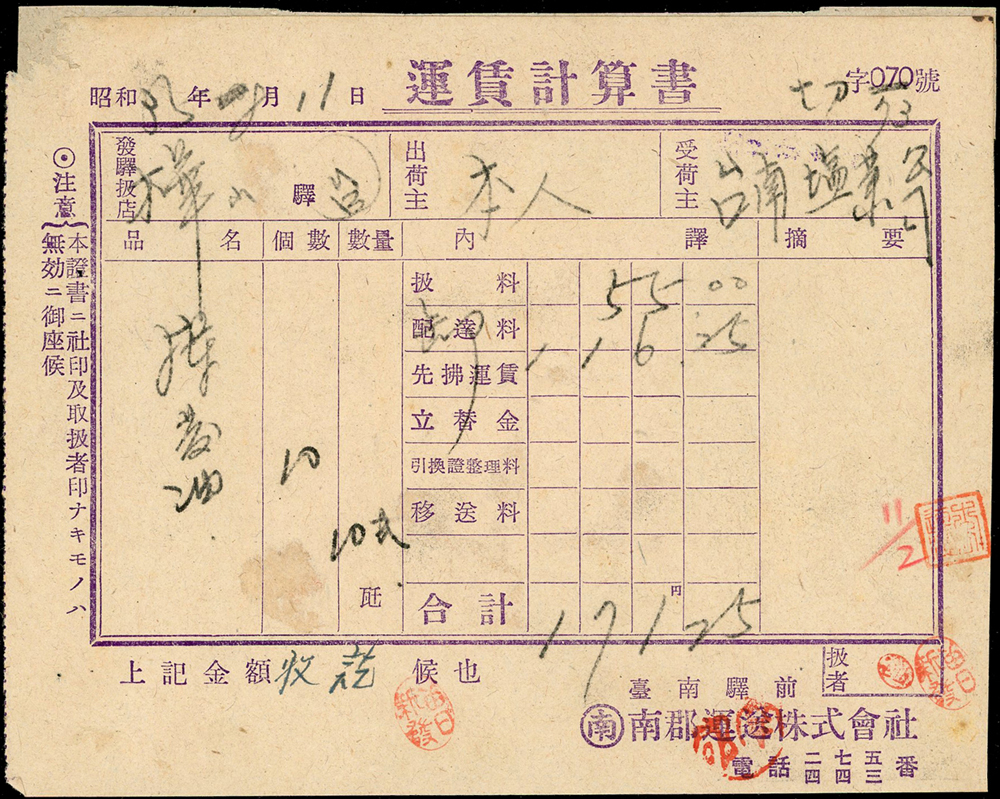 運賃計算書
字070號
昭和 年 月 11 日
發驛扱店 樺山驛
出荷主 本人
受荷主 台南塩業公司
品名 個數 數量 內譯 摘要
扱料 55 00
配達料 116.25
先拂運賃
立替金
引換證整理料
移送料
油 10
10
瓩
合計 171円25
11/2
上記金額收訖候也
扱者
臺南驛前
南 南郡運送株式會社
電話 二七五番
四四三
◉注意 本證書ニ社印及取扱者印ナキモノハ
無効ニ御座候